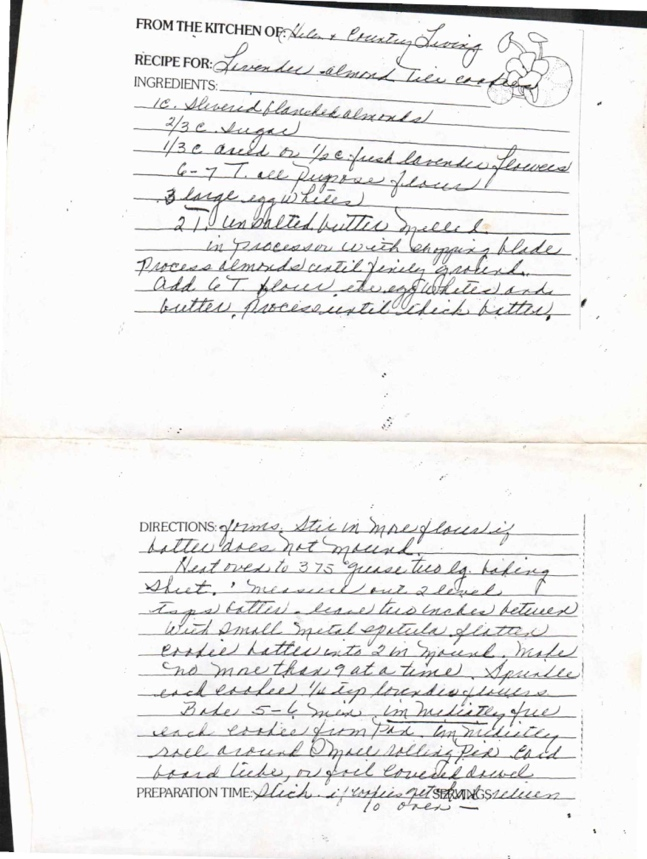 FROM THE KITCHEN OF: Helen & Country Living
RECIPE FOR: Lavender almond tile cookies
INGREDIENTS:
1 c. Slivered blanched almonds
2/3 c. sugar
1/3 c dried or 1/2 c. fresh lavender flowers
6-7 T. all purpose flour
3 large egg whites
2 T. unsalted butter melted.
in processor with chopping blade
Process almonds until finely ground.
add 6 T flour, egg whites and
butter. process until thick batter
DIRECTIONS: forms. Stir in more flour if
batter does not mound.
Heat oven to 375° grease two lg. baking
sheet. measure out 2 level
tsps batter - leave two inches between
with small metal spatula flatten
cookie batter into 2 in mound. Make
no more than 9 at a time. Sprinkle
each cookie 1/4 tsp lavender flowers
Bake 5-6 min. immediatly free
each cookie from Pan. immediatly
roll around small rolling Pin Card
board tube, or foil covered dowel
PREPARATION TIME: Stick. if cookies get SERVINGS: return
to oven -